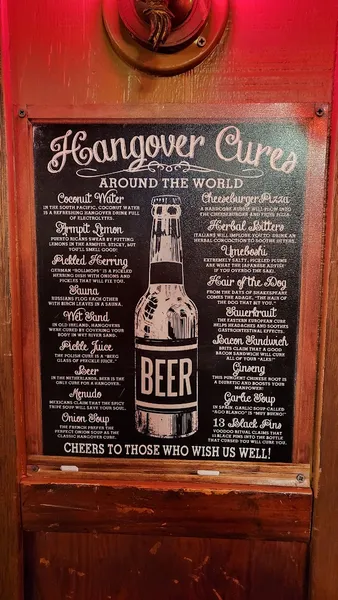 Hangover Cures
AROUND THE WORLD
Coconut Water
IN THE SOUTH PACIFIC, COCONUT WATER
IS A REFRESHING HANGOVER DRINK FULL
OF ELECTROLYTES.
Armpit Lemon
PUERTO RICANS SWEAR BY PUTTING
LEMONS IN THE ARMPITS. STICKY, BUT
YOU'LL SMELL GOOD!
Pickled Herring
GERMAN "ROLLMOPS" IS A PICKLED
HERRING DISH WITH ONIONS AND
PICKLES THAT WILL FIX YOU.
Sauna
RUSSIANS FLOG EACH OTHER
WITH BIRCH LEAVES IN A SAUNA.
Wet Sand
IN OLD IRELAND, HANGOVERS
WERE CURED BY COVERING YOUR
BODY IN WET RIVER SAND.
Pickle Juice
THE POLISH CURE IS A
GLASS OF PICKLE JUICE."
Beer
IN THE NETHERLANDS, BEER IS THE
ONLY CURE FOR A HANGOVER.
Menudo
MEXICANS CLAIM THAT THE SPICY
TRIPE SOUP WILL SAVE YOUR SOUL.
Onion Soup
THE FRENCH PREFER THE
PERFECT ONION SOUP AS THE
CLASSIC HANGOVER CURE.
BEER
Cheeseburger Pizza
A HARDCORE AUSSIE WILL
THE CHEESEBURGER AND FRIES PIZZA.
Herbal Bitters
ITALIANS WILL IMPLORE YOU TO DRINK AN
HERBAL CONCOCTION TO SOOTHE
Umeboshi
EXTREMELY SALTY, PICKLED PLUMS
ARE WHAT THE JAPANESE ADVISE
IF YOU OVERDO THE SAKI.
Hair of the Dog
FROM THE DAYS OF SHAKESPEARE
COMES THE ADAGE, "THE HAIR OF
THE DOG THAT BIT YOU."
Sauerkraut
THE EASTERN EUROPEAN CURE
HELPS HEADACHES AND SOOTHES
GASTROINTESTINAL EFFECTS.
Bacon Sandwich
BRITS CLAIM THAT A GOOD
BACON SANDWICH WILL CURE
ALL OF YOUR "AILES."
Ginseng
THIS PUNGENT CHINESE ROOT IS
A DIURETIC AND BOOSTS YOUR
MANPOWER!
Garlic Soup
IN SPAIN, GARLIC SOUP CALLED
"AGO BLANCO" IS "MUY BUENO!"
13 Black Pins
VOODOO RITUAL CLAIMS THAT
13 BLACK PINS INTO THE BOTTLE
THAT CURSED YOU WILL CURE YOU.
CHEERS TO THOSE WHO WISH US WELL!